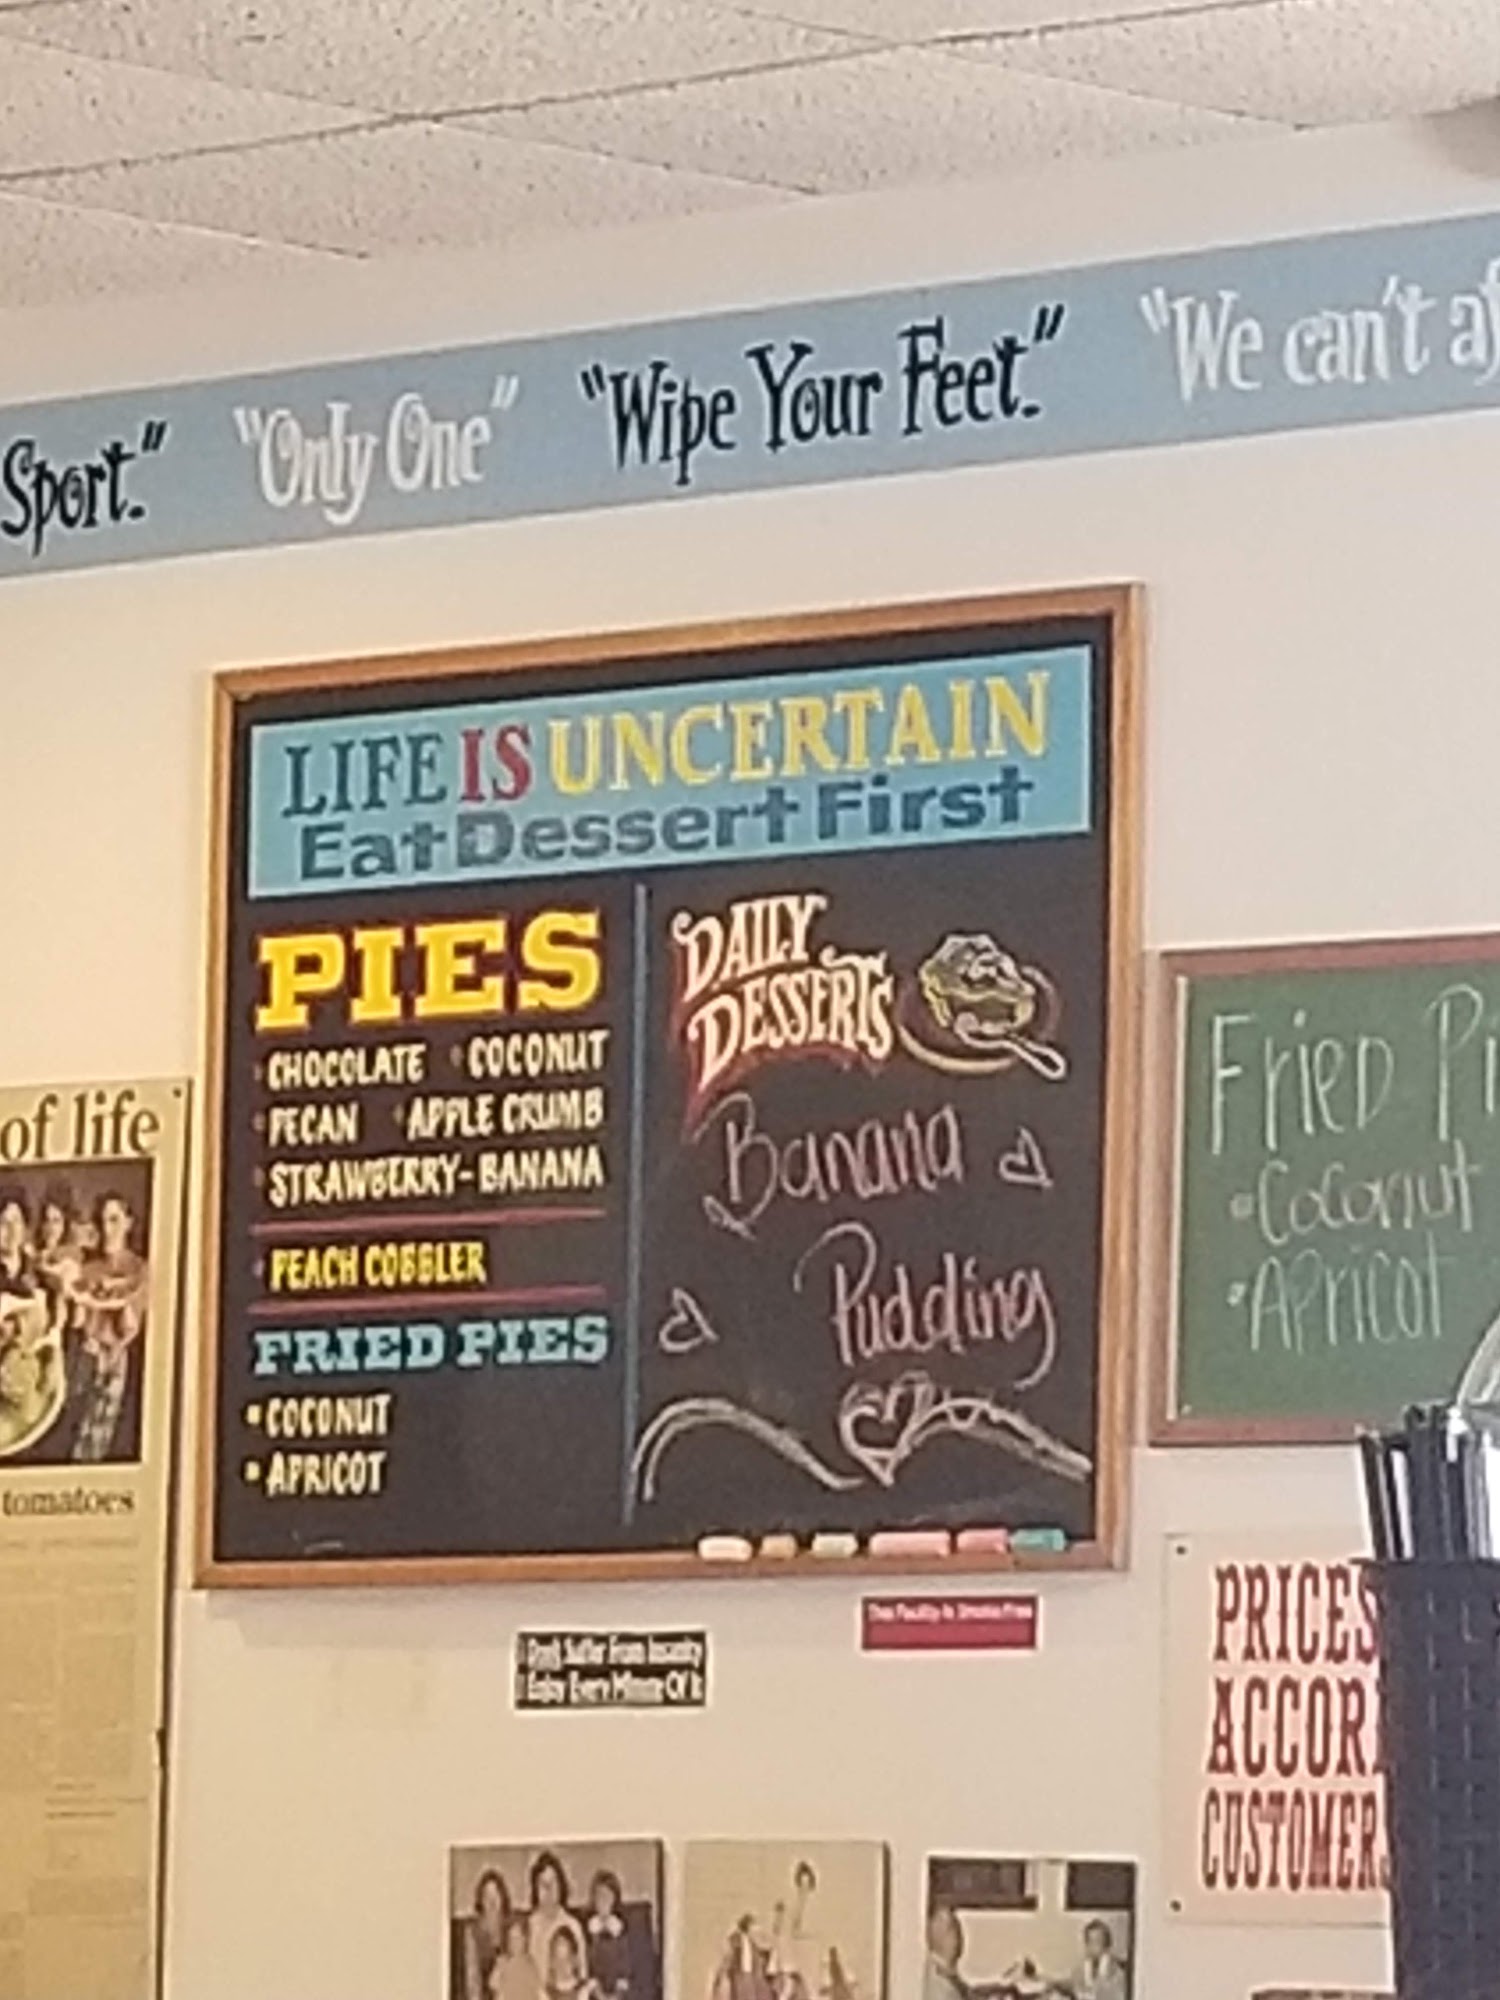 Sport." "Only One" "Wipe Your Feet." "We can't af
LIFE IS UNCERTAIN
Eat Dessert First
PIES
• CHOCOLATE • COCONUT
• PECAN • APPLE CRUMB
• STRAWBERRY-BANANA
• PEACH COBBLER
FRIED PIES
• COCONUT
• APRICOT
DAILY
DESSERTS
Banana
Pudding
Fried Pi
• Coconut
• Apricot
of life
tomatoes
This Facility Is Smoke Free
I Don't Suffer From Insanity
I Enjoy Every Minute Of It
PRICES
ACCOR
CUSTOMER